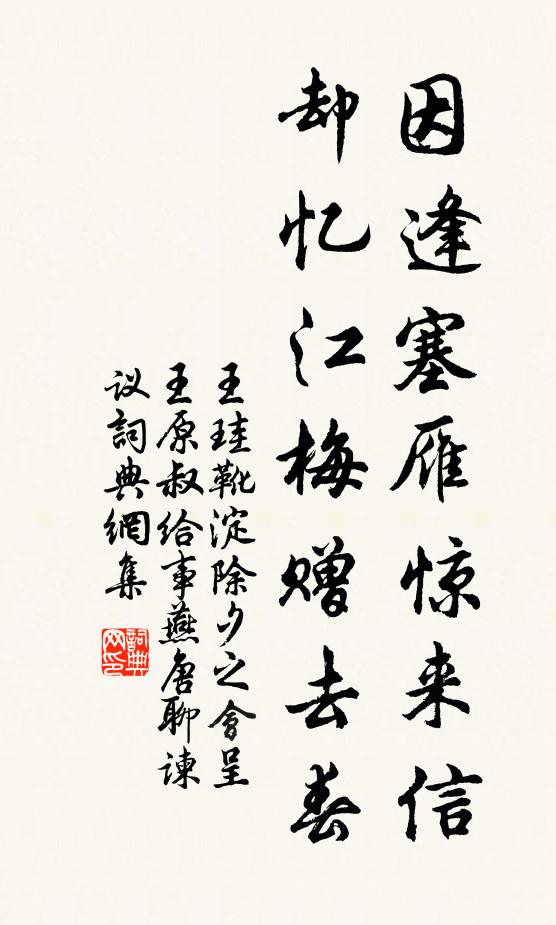 因逢塞雁惊来信
却忆江梅赠去春
王珪靴淀除夕之會呈
王原叔给事燕唐聊谏
议詞典網集
詞典网印